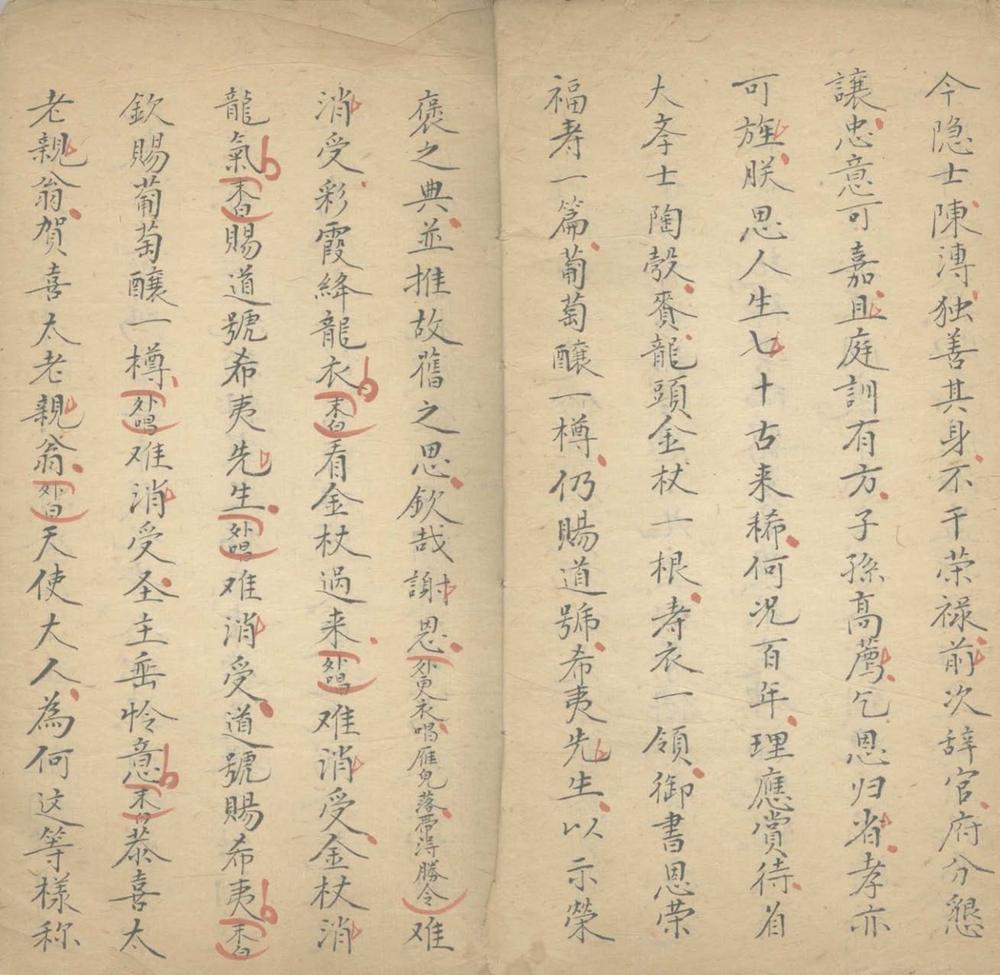 今隐士陳漙独善其身不干荣禄前次辞官府分懇
讓忠意可嘉且庭訓有方子孫高薦乞恩归省孝亦
可旌朕思人生七十古来稀何况百年理應賞待着
大孝士陶榖賫龍頭金杖一根寿衣一領御書恩荣
福寿一篇葡萄釀一樽仍賜道號希夷先生以示榮
褒之典並推故舊之思欽哉謝恩外更衣唱雁兒落帶得勝令难
消受彩霞絳龍衣末白看金杖過来外唱难消受金杖消
龍氣末白賜道號希夷先生外唱难消受道號賜希夷末白
欽賜葡萄釀一樽外唱难消受圣主垂怜意末白恭喜太
老親翁賀喜太老親翁外白天使大人為何这等樣称